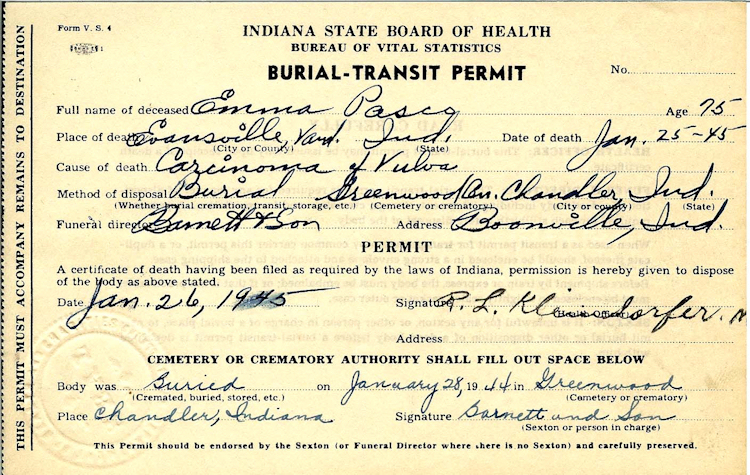 Form V. S. 4
INDIANA STATE BOARD OF HEALTH
BUREAU OF VITAL STATISTICS
BURIAL-TRANSIT PERMIT
No.
Full name of deceased Emma Pasco Age 75
Place of death Evansville, Vand. Ind. Date of death Jan. 25-45
(City or County) (State)
Cause of death Carcinoma of Vulva
Method of disposal Burial Greenwood Cem. Chandler, Ind.
(Whether burial cremation, transit, storage, etc.) (Cemetery or crematory) (City or county) (State)
Funeral director Barnett & Son Address Boonville, Ind.
PERMIT
A certificate of death having been filed as required by the laws of Indiana, permission is hereby given to dispose
of the body as above stated.
Date Jan. 26, 1945 Signature R. L.
Address
CEMETERY OR CREMATORY AUTHORITY SHALL FILL OUT SPACE BELOW
Body was Buried on January 28, 1944 in Greenwood
(Cremated, buried, stored, etc.) (Cemetery or crematory)
Place Chandler, Indiana Signature Barnett and Son
(Sexton or person in charge)
This Permit should be endorsed by the Sexton (or Funeral Director where there is no Sexton) and carefully preserved.
THIS PERMIT MUST ACCOMPANY REMAINS TO DESTINATION